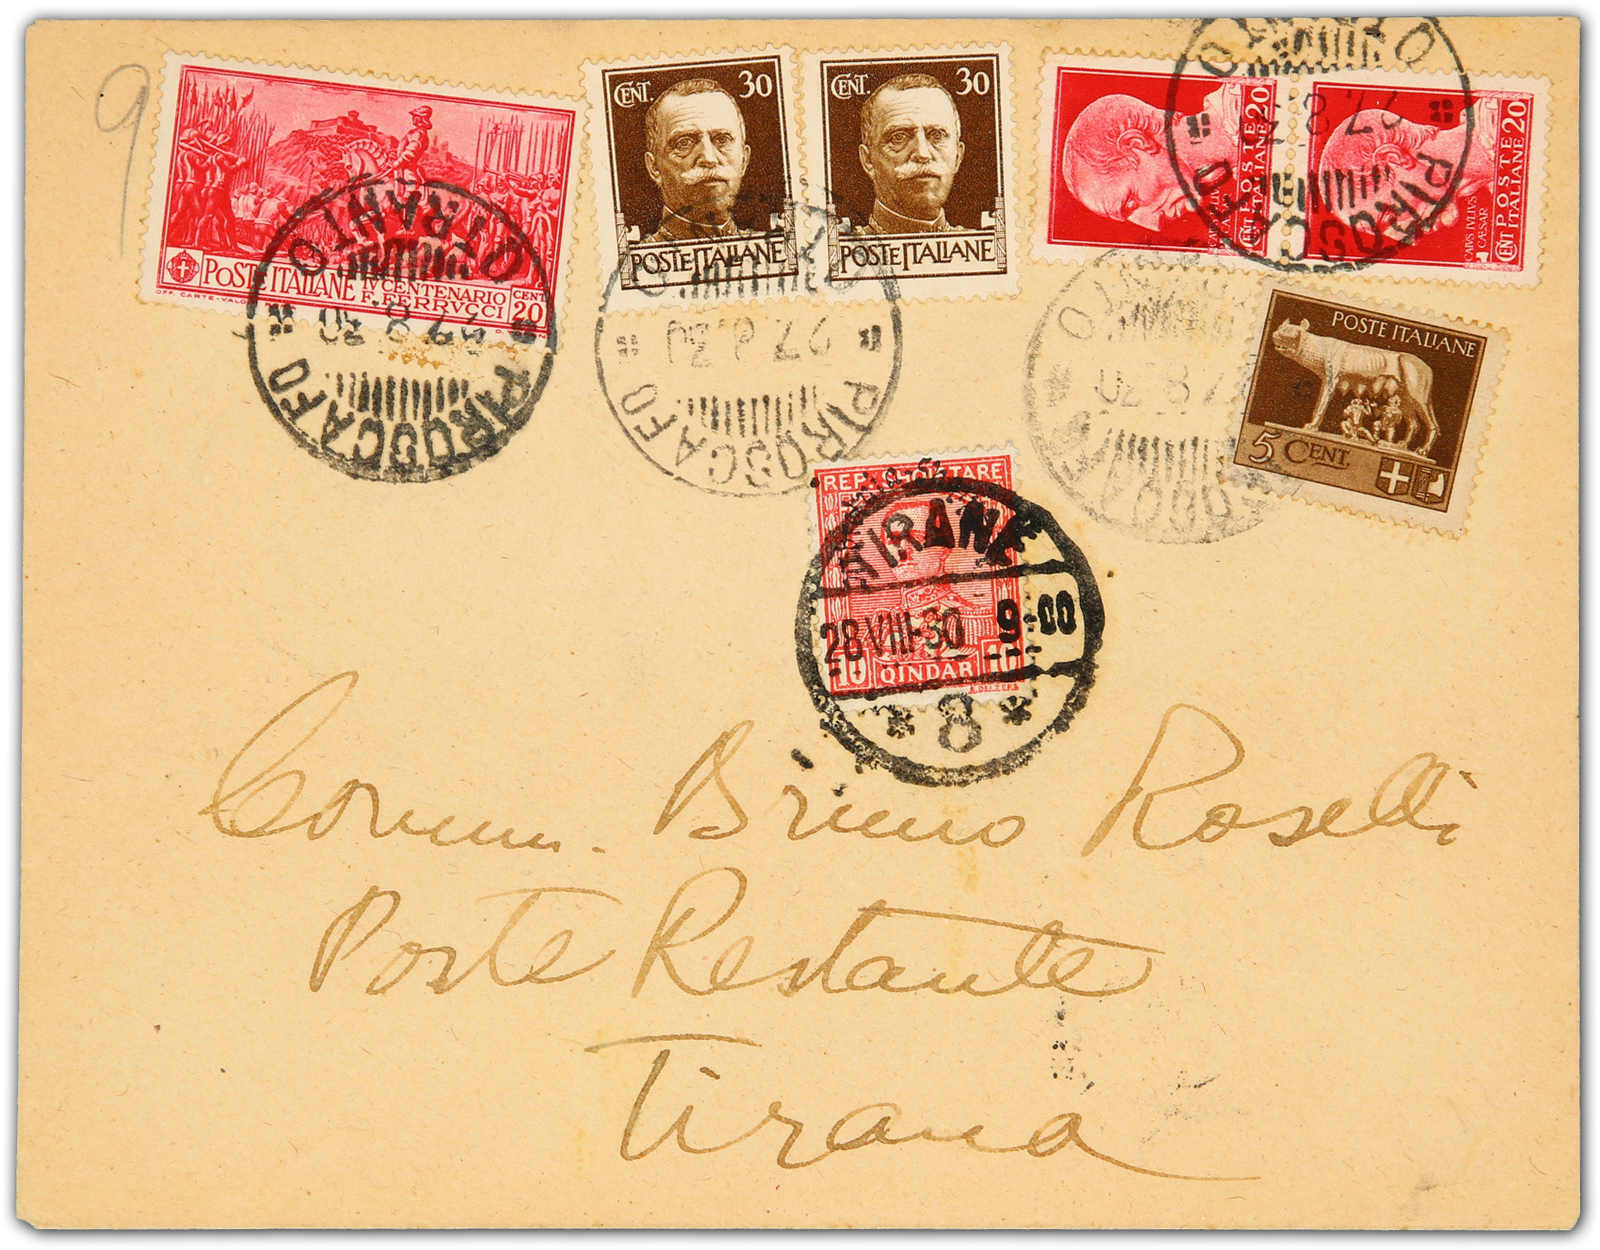 9
POSTE ITALIANE
IV CENTENARIO
F. FERRVCCI
CENT
20
OFF. CARTE-VALO
CENT. 30
POSTE ITALIANE
CENT. 30
POSTE ITALIANE
CENT POSTE 20
ITALIANE
CENT POSTE 20
ITALIANE
CAIVS IVLIVS
CÆSAR
PIROSCAFO OTRANTO
27.8.30
PIROSCAFO
27.8.30
PIROSCAFO
POSTE ITALIANE
5 CENT.
REP. SHQIPTARE
10 QINDAR 10
TIRANE
28 VIII-30 9-00
* 8 *
Comm. Bruno Roselli
Poste Restante
Tirana